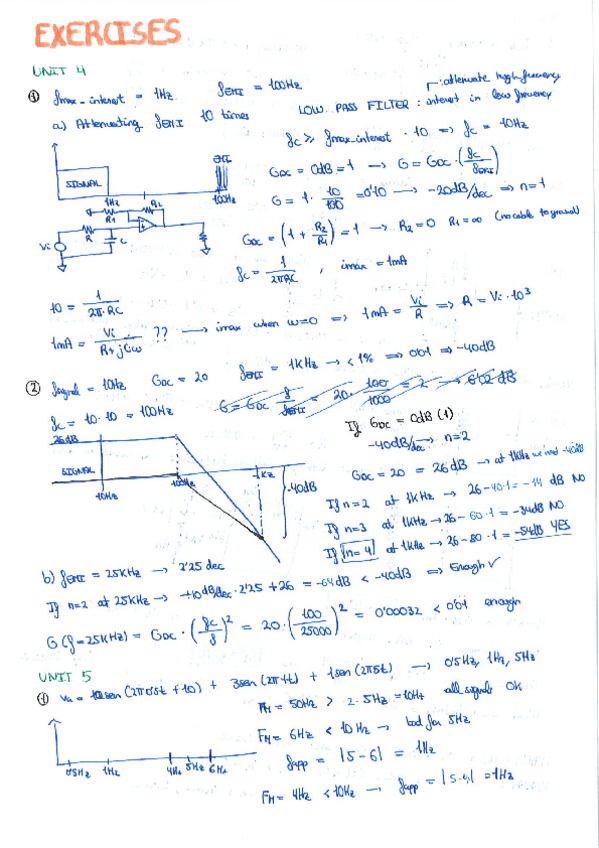 EXERCISES
UNIT 4
① fmax_interest = 1Hz   fEMI = 100Hz
a) Attenuating fEMI 10 times
LOW PASS FILTER: interest in low frecuency
attenuate high frecuency
fc ≥ fmax_interest · 10 => fc = 10Hz
GDC = 0dB = 1 → G = GDC · (fc/fEMI)
SIGNAL
EMI
1Hz
100Hz
G = 1 · 10/100 = 0'10 → -20dB/dec => n=1
R1
R2
R
C
Vi
GDC = (1 + R2/R1) = 1 → R2 = 0 R1 = ∞ (no cable to ground)
fc = 1/2πRC , imax = 1mA
10 = 1/2π·RC
1mA = Vi/R+jCω ?? → imax when ω=0 => 1mA = Vi/R => R = Vi·10³
② fsignal = 10Hz   GDC = 20   fEMI = 1KHz → < 1% => 0'01 => -40dB
fc = 10·10 = 100Hz   G = GDC f/fEMI = 20 · 100/1000 = 2 → 6'02 dB
If GDC = 0dB (1)
-40dB/dec → n=2
26dB
SIGNAL
10Hz
100Hz
1KHz
-40dB
GDC = 20 = 26dB → at 1KHz we need -40dB
If n=2 at 1KHz → 26-40·1 = -14 dB NO
If n=3 at 1KHz → 26-60·1 = -34dB NO
If n=4 at 1KHz → 26-80·1 = -54dB YES
b) fEMI = 25KHz → 2'25 dec
If n=2 at 25KHz → -40dB/dec · 2'25 + 26 = -64dB < -40dB => Enough ✓
G(f=25KHz) = GDC · (fc/f)² = 20 · (100/25000)² = 0'00032 < 0'01 enough
UNIT 5
① va = sen(2π0'5t + 10) + 3sen(2π1t) + 1sen(2π5t) → 0'5Hz, 1Hz, 5Hz
FM = 50Hz > 2·5Hz = 10Hz all signals OK
FM = 6Hz < 10Hz → bad for 5Hz
fapp = |5-6| = 1Hz
0'5Hz
1Hz
4Hz
5Hz
6Hz
FM = 4Hz < 10Hz → fapp = |5-4| = 1Hz